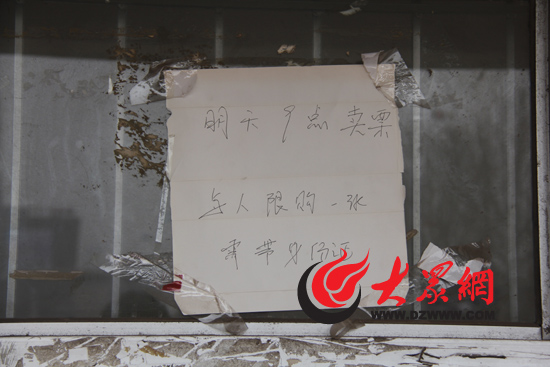 明天9点卖票
每人限购一张
需带身份证
大众網
WWW.DZWWW.COM